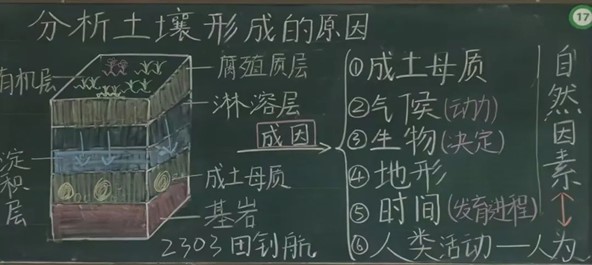 分析土壤形成的原因
17
有机层
腐殖质层
淋溶层
淀积层
成土母质
基岩
2303田钊航
成因
①成土母质
②气候(动力)
③生物(决定)
④地形
⑤时间(发育进程)
⑥人类活动—人为
自然因素